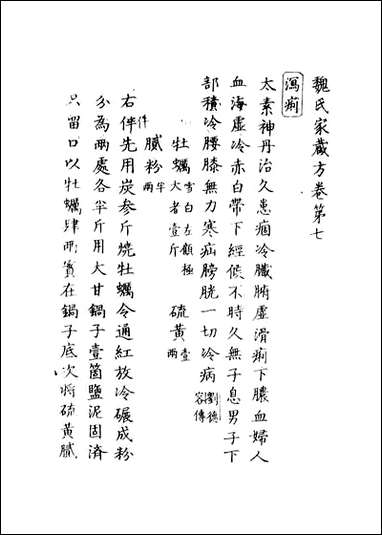 魏氏家藏方卷第七
瀉痢
太素神丹治久患痼冷臟腑虛滑痢下膿血婦人
血海虛冷赤白帶下經候不時久無子息男子下
部積冷腰膝無力寒疝膀胱一切冷病劉德容傳
牡蠣雪白左顧極大者壹斤 硫黃壹兩
膩粉半兩
右件先用炭叁斤燒牡蠣令通紅放冷碾成粉
分為兩處各半斤用大甘鍋子壹箇鹽泥固濟
只留口以牡蠣肆兩實在鍋子底次將硫黃膩
件